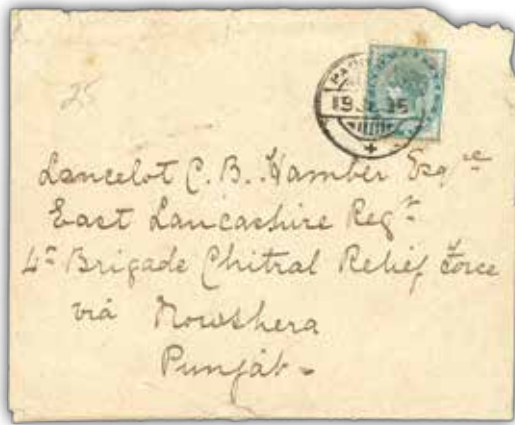 25
19 95
Lancelot C. B. Hamber Esqre
East Lancashire Regt
4th Brigade Chitral Relief Force
via Nowshera
Punjab